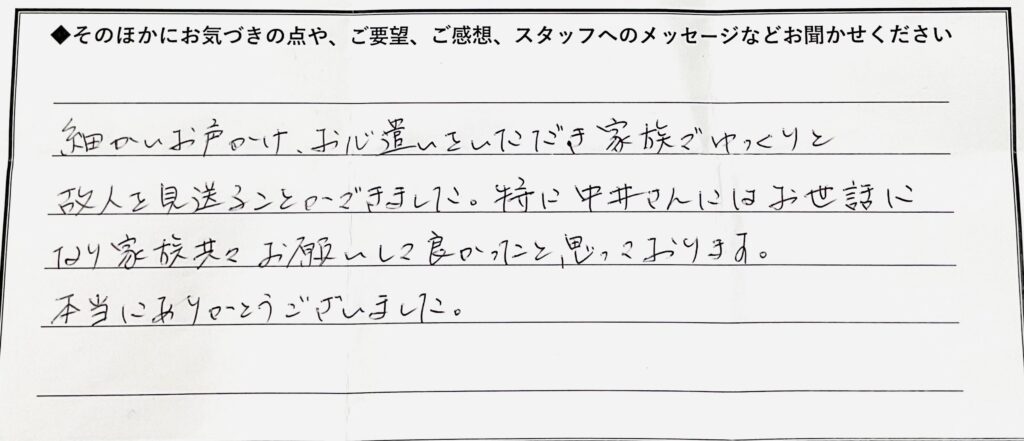 ◆そのほかにお気づきの点や、ご要望、ご感想、スタッフへのメッセージなどお聞かせください
細かいお声かけ、お心遣いをいただき家族でゆっくりと
故人を見送ることができました。特に中井さんにはお世話に
なり家族共々お願いして良かったと思っております。
本当にありがとうございました。